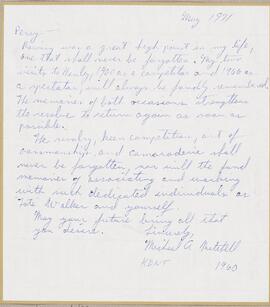 May 1971
Perry—
Rowing was a great high point in my life,
one that shall never be forgotten. My two
visits to Henley, as a competitor and as
a spectator, will always be fondly remembered.
The memories of both occasions strengthen
the resolve to return again as soon as
possible.
The rivalry, keen competition, art of
oarsmanship, and camaraderie shall
never be forgotten, nor will the fond
memories of associating and working
with such dedicated individuals as
Walker and yourself.
May your future bring all that
you desire.
Sincerely,
Michael A.
KENT 1960